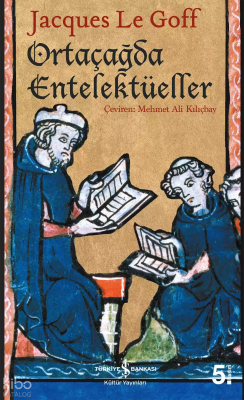 Jacques Le Goff
Ortaçağda
Entelektüeller
Çeviren: Mehmet Ali Kılıçbay
TÜRKİYE İŞ BANKASI
Kültür Yayınları
5.